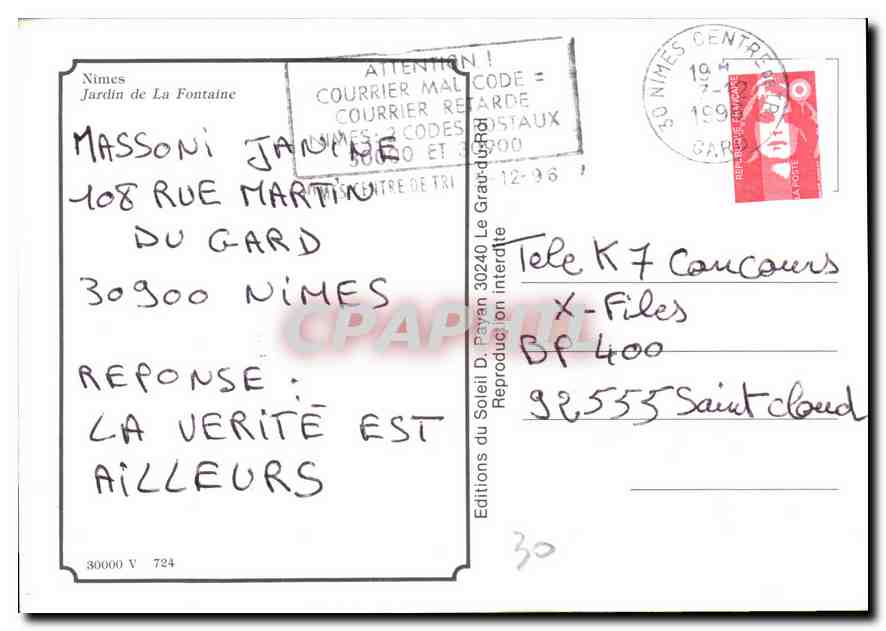 Nimes
Jardin de La Fontaine
MASSONI JANINE
108 RUE MARTIN
DU GARD
30900 NIMES
REPONSE :
LA VERITÉ EST
AILLEURS
30000 V 724
ATTENTION !
COURRIER MAL CODE =
COURRIER RETARDE
NIMES : 2 CODES POSTAUX
30000 ET 30900
NIMES CENTRE DE TRI -12-96
30 NIMES CENTRE DE TRI
19
-12
199
GARD
REPUBLIQUE FRANÇAISE
LA POSTE
Editions du Soleil D. Payan 30240 Le Grau-du-Roi
Reproduction interdite
Tele K7 Concours
X-Files
BP 400
92555 Saint cloud
30
CPAPHIL